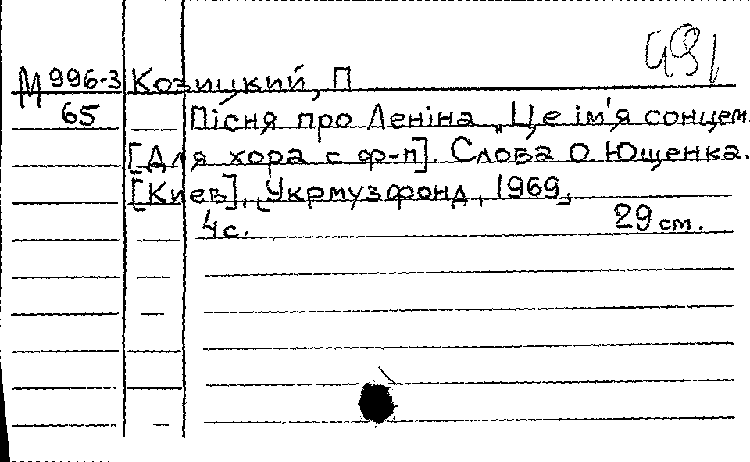 491
М 996-3 Козицкий, П
65 Пісня про Леніна „Це ім'я сонцем.
[Для хора с ф-п]. Слова О. Ющенка.
[Киев], [Укрмузфонд, 1969,
4 с. 29 см.